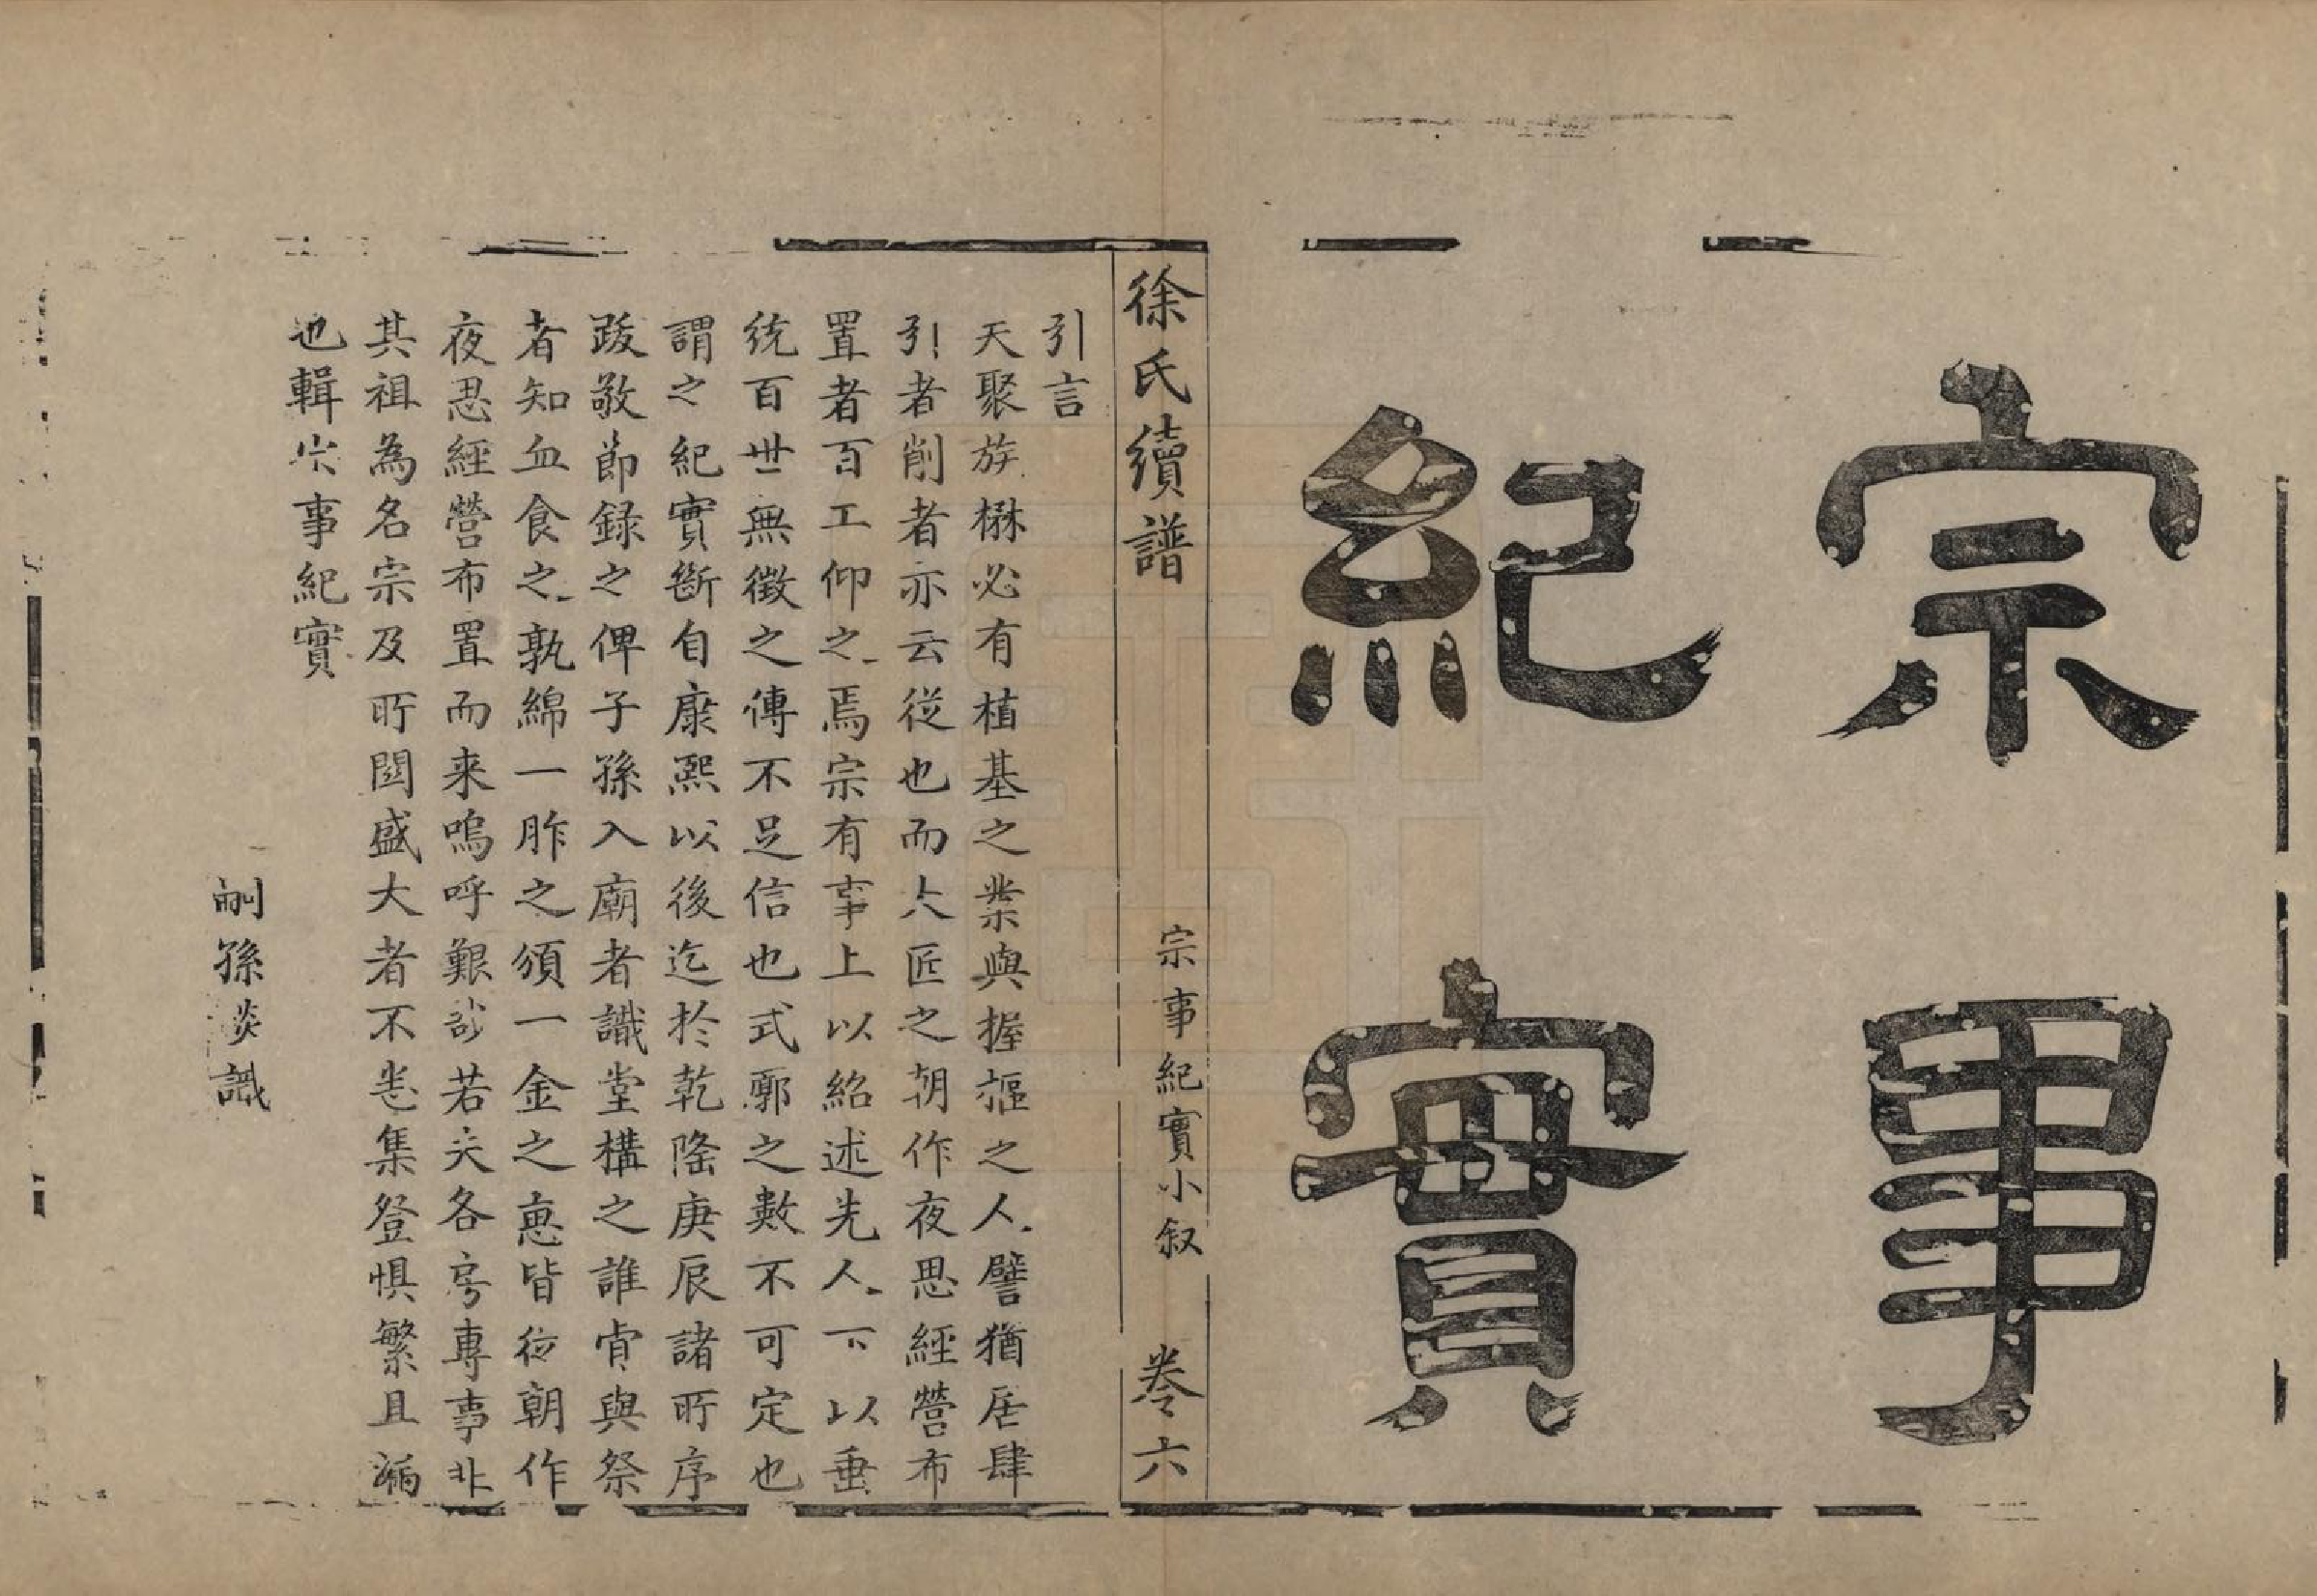 宗事
紀實
徐氏續譜
宗事紀實小叙
卷六
引言
夫聚族楙必有植基之業與握樞之人譬猶居肆
引者削者亦云從也而大匠之朝作夜思經營布
置者百工仰之焉宗有事上以紹述先人下以垂
統百世無徵之傳不足信也式廓之數不可定也
謂之紀實斷自康熙以後迄於乾隆庚辰諸所序
跋敬節録之俾子孫入廟者識堂構之誰肯與祭
者知血食之孰綿一胙之頒一金之惠皆從朝作
夜思經營布置而来嗚呼艱哉若夫各房專事非
其祖為名宗及所関盛大者不悉集登惧繁且漏
也輯宗事紀實
嗣孫炎識